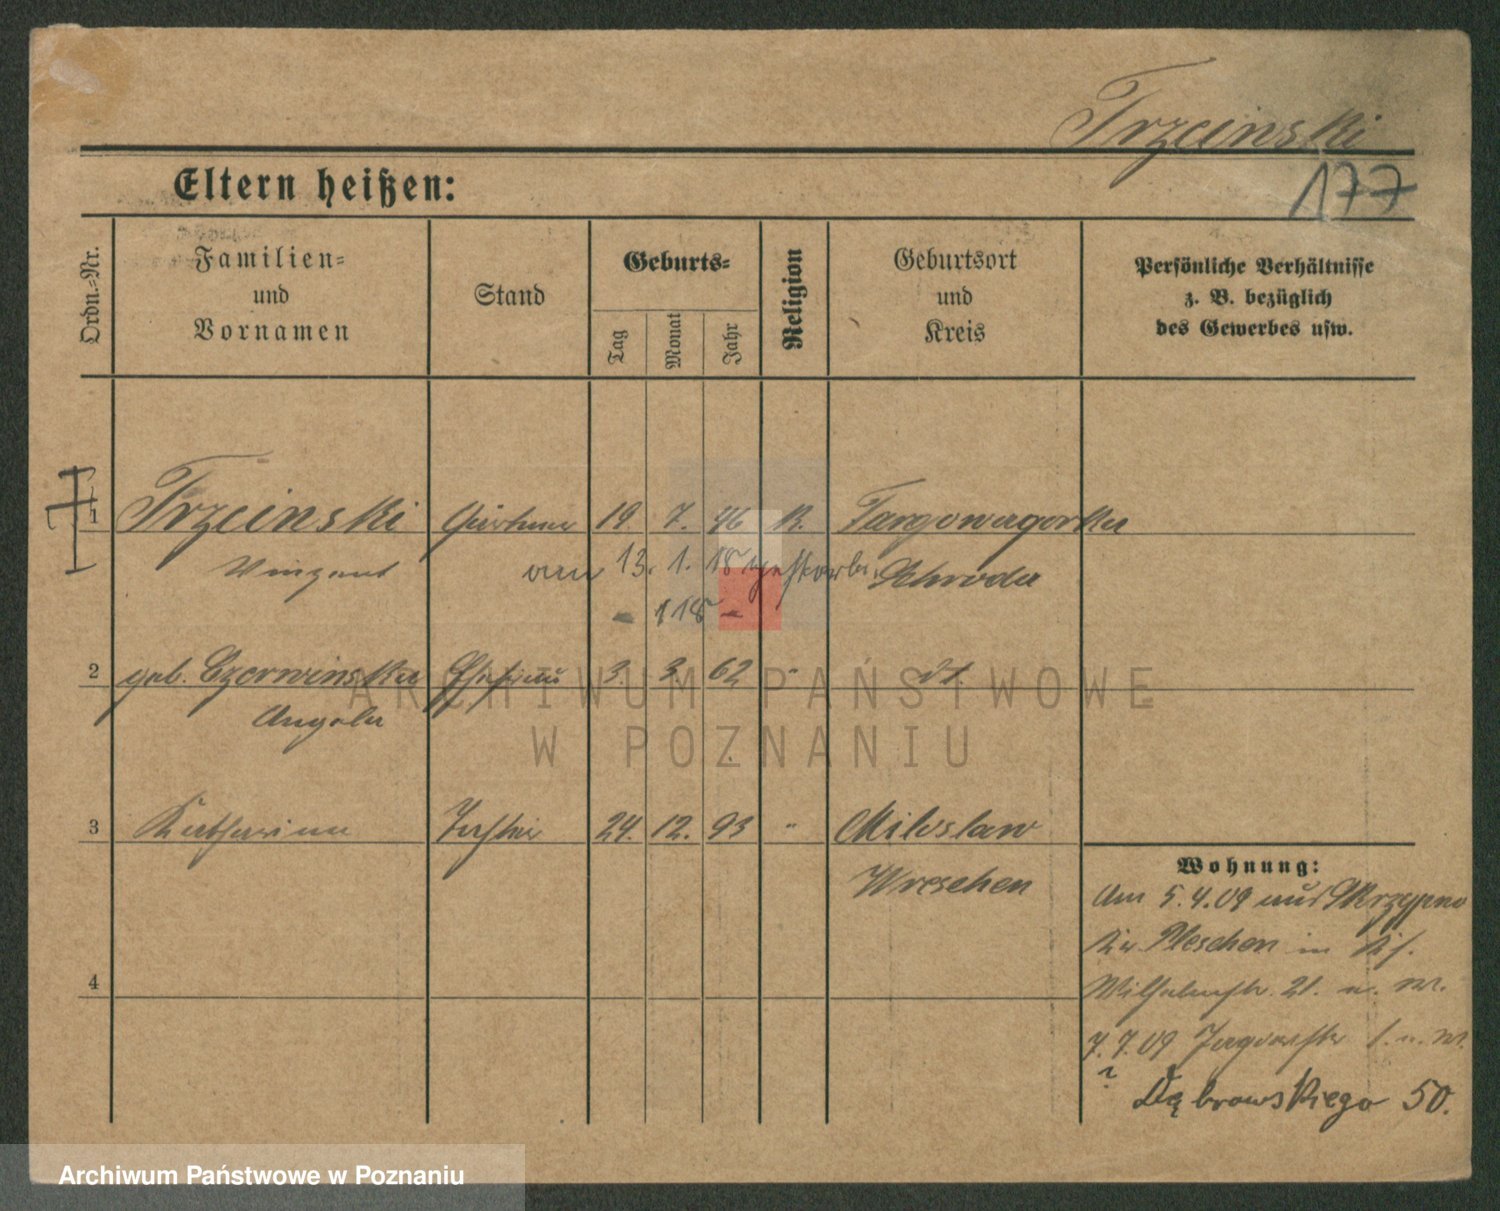 Trzcinski
177
Eltern heißen:
Ordn.-Nr.
Familien-
und
Vornamen
Stand
Geburts-
Tag
Monat
Jahr
Religion
Geburtsort
und
Kreis
Persönliche Verhältnisse
z. B. bezüglich
des Gewerbes usw.
1 Trzcinski Gärtner 19. 7. 46 K. Targowagorka
Vinzent am 13. 1. 18 gestorb. Schroda
- 118 -
2 geb. Czerwinska Ehefrau 3. 3. 62 " dt.
Angela
3 Katharina Tochter 24. 12. 93 " Miloslaw
Wreschen
4
Wohnung:
Am 5.4.09 aus Skrzypno
Kr. Pleschen in
Wilhelmstr. 21. u. W.
7.7.09 u. W.
Dąbrowskiego 50.
ARCHIWUM PAŃSTWOWE
W POZNANIU
Archiwum Państwowe w Poznaniu